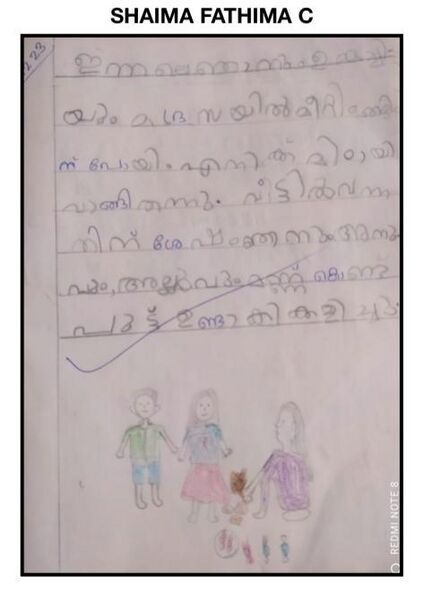 SHAIMA FATHIMA C
2.23
ഇന്നലെഞാനുംഉമ്മച്ചി
യും മദ്രസയിൽമീറ്റിംങ്ങി
ന് പോയി. എനിക്ക് മിഠായി
വാങ്ങിതന്നു. വീട്ടിൽവന്ന
തിന് ശേഷംഞാനുംഅനു
വും, മണ്ണ് കൊണ്ട്
പുട്ട് ഉണ്ടാക്കികളിച്ചു
REDMI NOTE 8